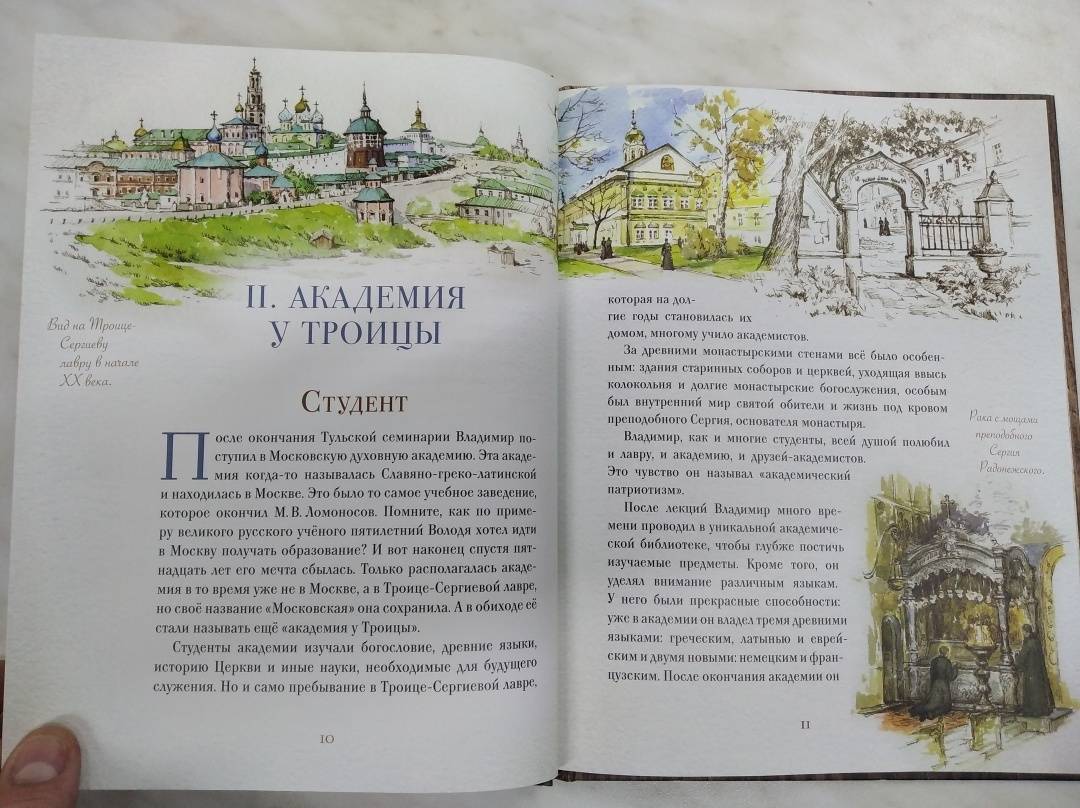 Вид на Троице-
Сергиеву
лавру в начале
XX века.
II. АКАДЕМИЯ
У ТРОИЦЫ
СТУДЕНТ
После окончания Тульской семинарии Владимир по-
ступил в Московскую духовную академию. Эта акаде-
мия когда-то называлась Славяно-греко-латинской
и находилась в Москве. Это было то самое учебное заведение,
которое окончил М. В. Ломоносов. Помните, как по приме-
ру великого русского учёного пятилетний Володя хотел идти
в Москву получать образование? И вот наконец спустя пят-
надцать лет его мечта сбылась. Только располагалась акаде-
мия в то время уже не в Москве, а в Троице-Сергиевой лавре,
но своё название «Московская» она сохранила. А в обиходе её
стали называть ещё «академия у Троицы».
Студенты академии изучали богословие, древние языки,
историю Церкви и иные науки, необходимые для будущего
служения. Но и само пребывание в Троице-Сергиевой лавре,
10
которая на дол-
гие годы становилась их
домом, многому учило академистов.
За древними монастырскими стенами всё было особен-
ным: здания старинных соборов и церквей, уходящая ввысь
колокольня и долгие монастырские богослужения, особым
был внутренний мир святой обители и жизнь под кровом
преподобного Сергия, основателя монастыря.
Владимир, как и многие студенты, всей душой полюбил
и лавру, и академию, и друзей-академистов.
Это чувство он называл «академический
патриотизм».
После лекций Владимир много вре-
мени проводил в уникальной академиче-
ской библиотеке, чтобы глубже постичь
изучаемые предметы. Кроме того, он
уделял внимание различным языкам.
У него были прекрасные способности:
уже в академии он владел тремя древними
языками: греческим, латынью и еврей-
ским и двумя новыми: немецким и фран-
цузским. После окончания академии он
Рака с мощами
преподобного
Сергия
Радонежского.
11